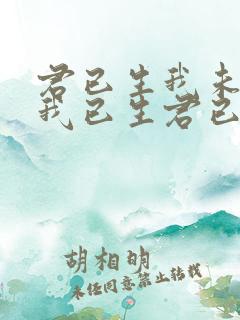 君已生我未
我已生君已
胡相明
未经同意禁止转载